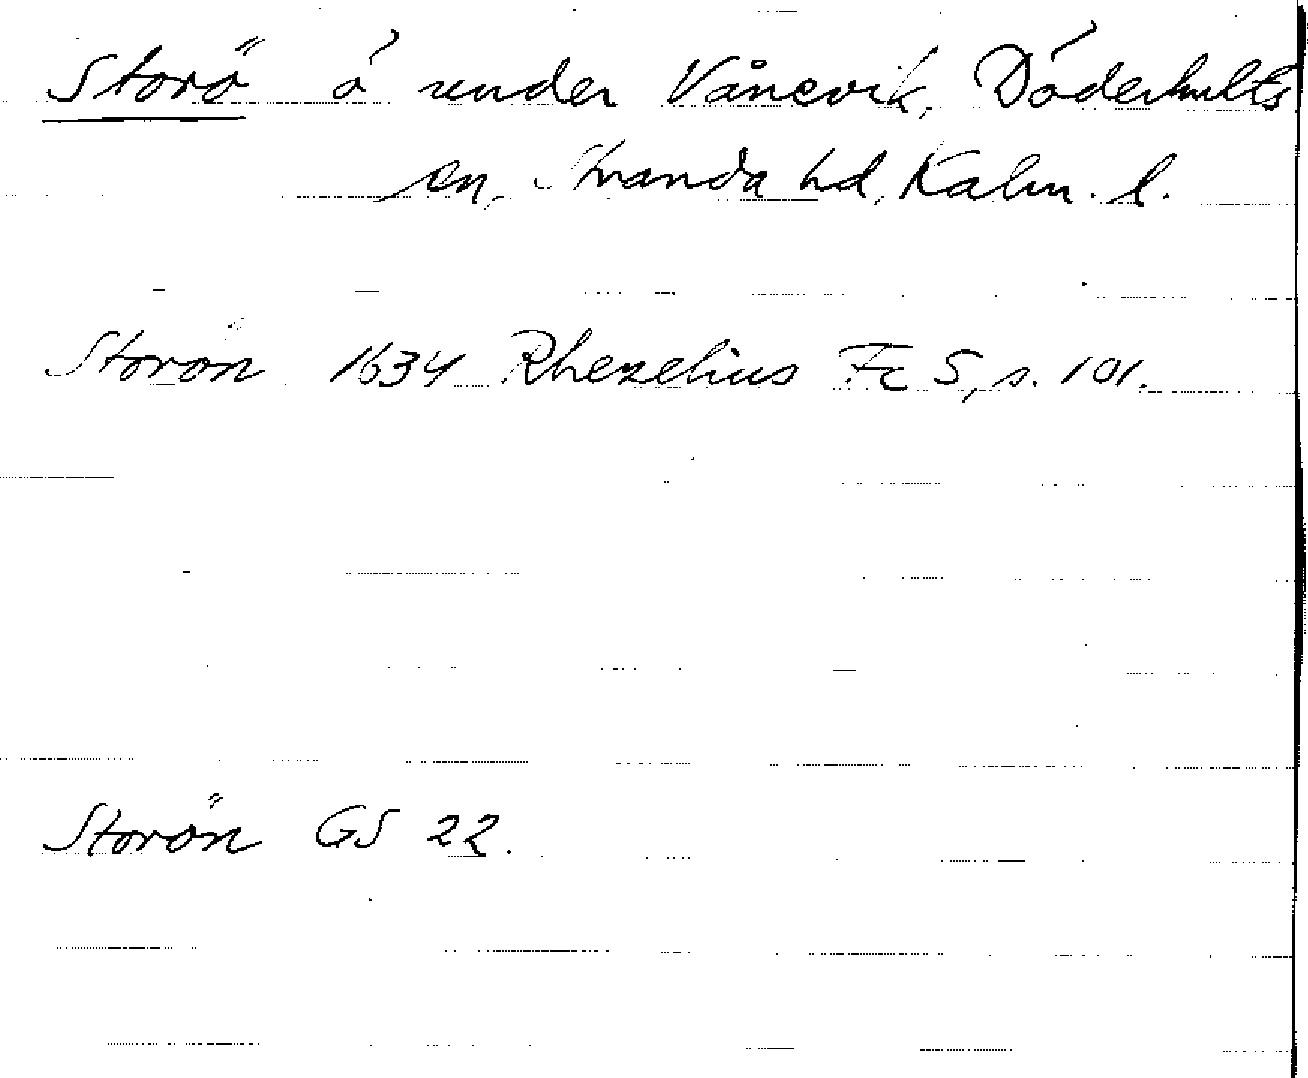 Storö ö under Vånevik, Döderhults
sn, Stranda hd, Kalm. l.
Storön 1634 Rhezelius Fc 5, s. 101.
Storön GS 22.